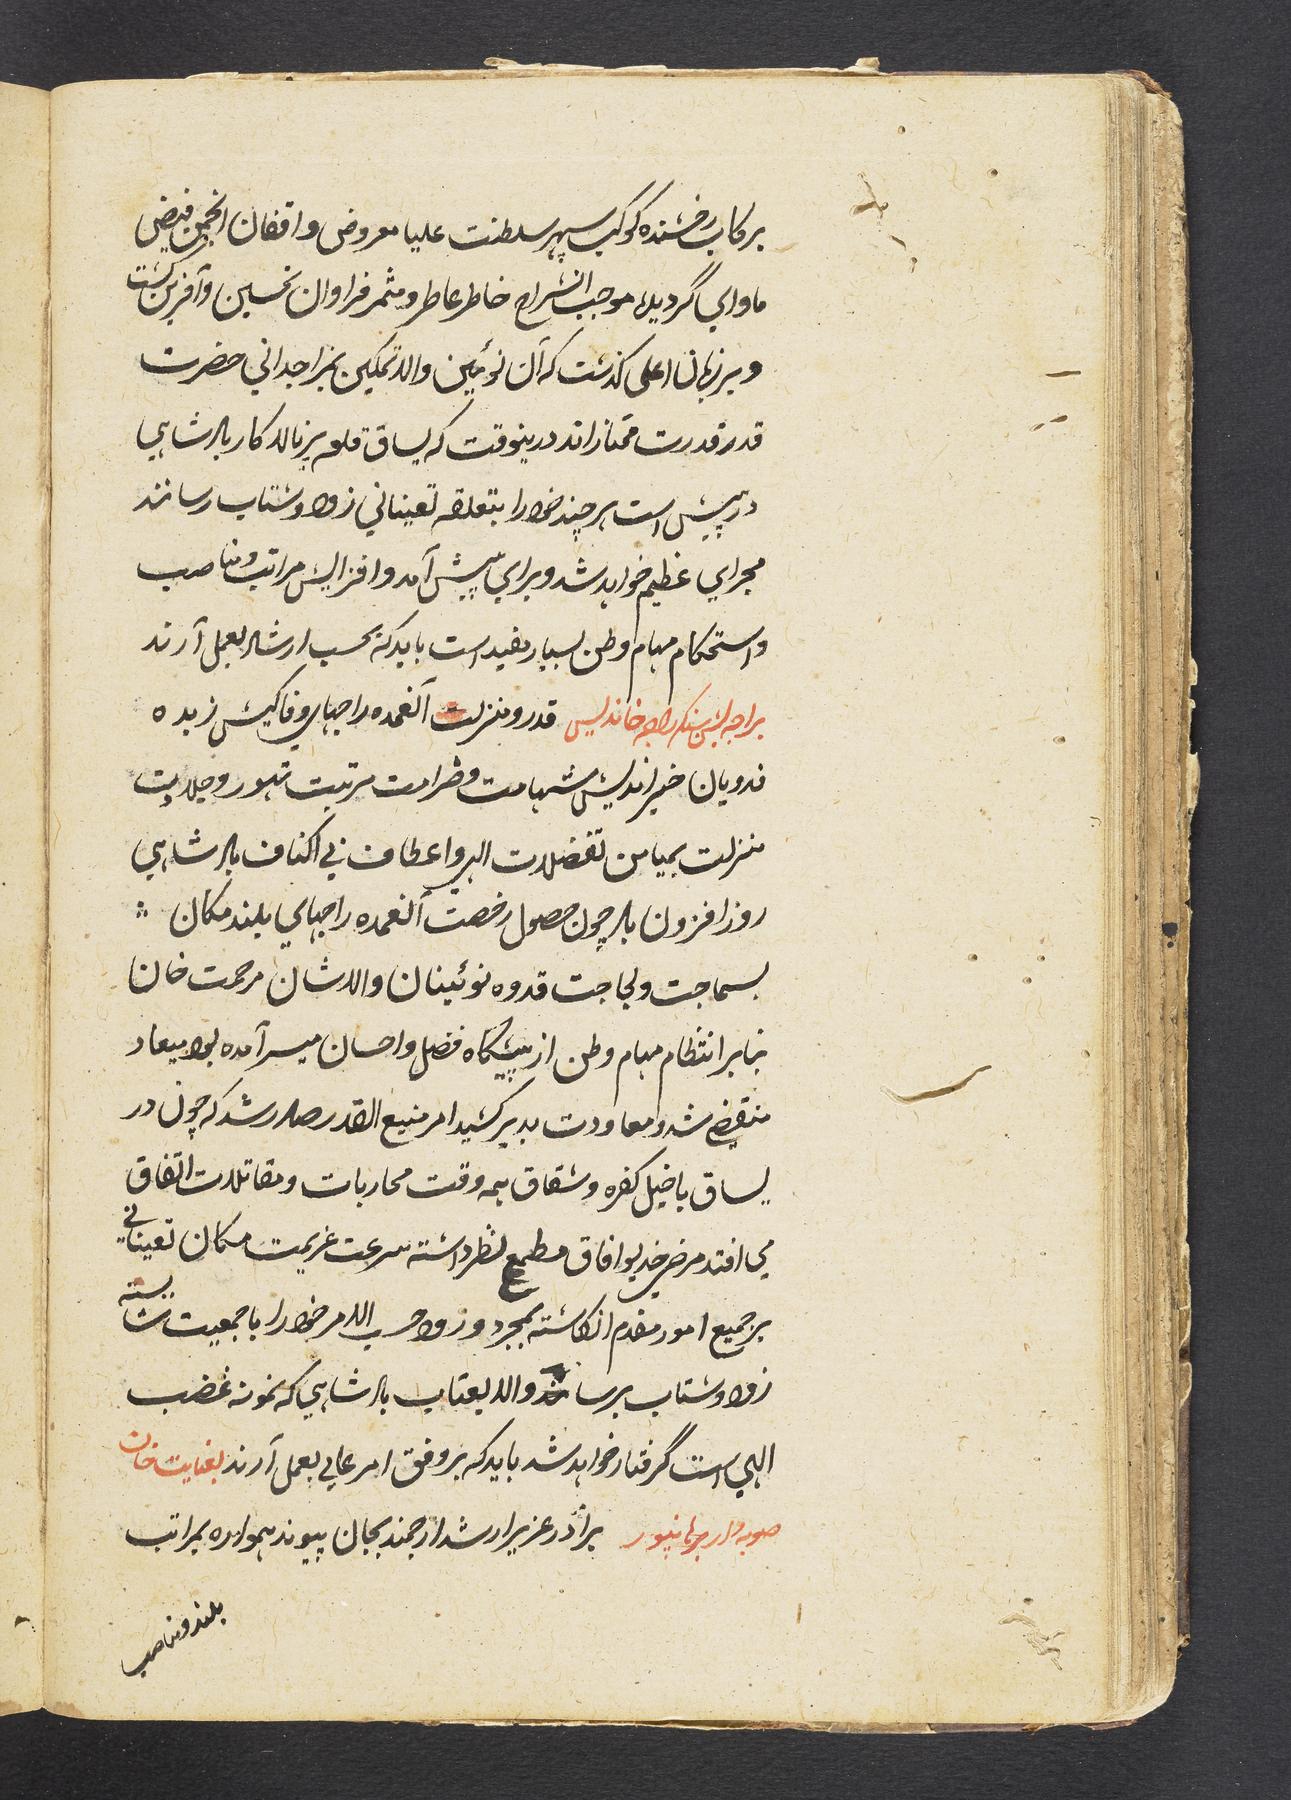 برکاب رخشنده کوکب سپهر سلطنت علیا معروض واقفان انجمن فیض
ماوای گردیده موجب انشراح خاطر عاطر و مثمر فراوان تحسین و آفرین گشت
و بر زبان اعلی گذشت که آن نوئین والا تمکین حضرت
قدر قدرت ممتاز اند درینوقت که یساق قلعه پرناله کار بادشاهی
در پیش است هر چند خود را بتعلقه تعیناتی زود و شتاب رسانند
مجرای عظیم خواهد شد و برای پیش آمد و افزایش مراتب و مناصب
و استحکام مهام وطن بسیار مفید است باید که بحسب ارشاد بعمل آرند
براجه سنگه راجه خاندیس قدر و منزلت آنعمده راجهای وفاکیش زبده
فدویان خیر اندیش شهامت و صرامت مرتبت تهور و جلادت
منزلت بمیامن تفضلات الهی و اعطاف بی اکناف بادشاهی
روز افزون باد چون حصول رخصت آنعمده راجهای بلند مکان
بسماجت و لجاجت قدوه نوئینان والاشان مرحمت خان
بنابر انتظام مهام وطن از پیشگاه فضل و احسان میسر آمده بود میعاد
منقضی شد و معاودت بدیر کشید امر منیع القدر صادر شد که چون در
یساق باخیل کفره و شقاق همه وقت محاربات و مقاتلات اتفاق
می افتد مرضی خدیو افاق مطمح نظر داشته سرعت عزیمت مکان تعیناتی
بر جمیع امور مقدم انگاشته بمجرد ورود حسب الامر خود را با جمعیت شایسته
زود و شتاب برساند والا بعتاب بادشاهی که نمونه غضب
الهی است گرفتار خواهد شد باید که بر وفق امر عالی بعمل آرند بعنایت خان
صوبه دار برهانپور برادر عزیز ارشد ارجمند بجان پیوند همواره بمراتب
بلند و مناصب